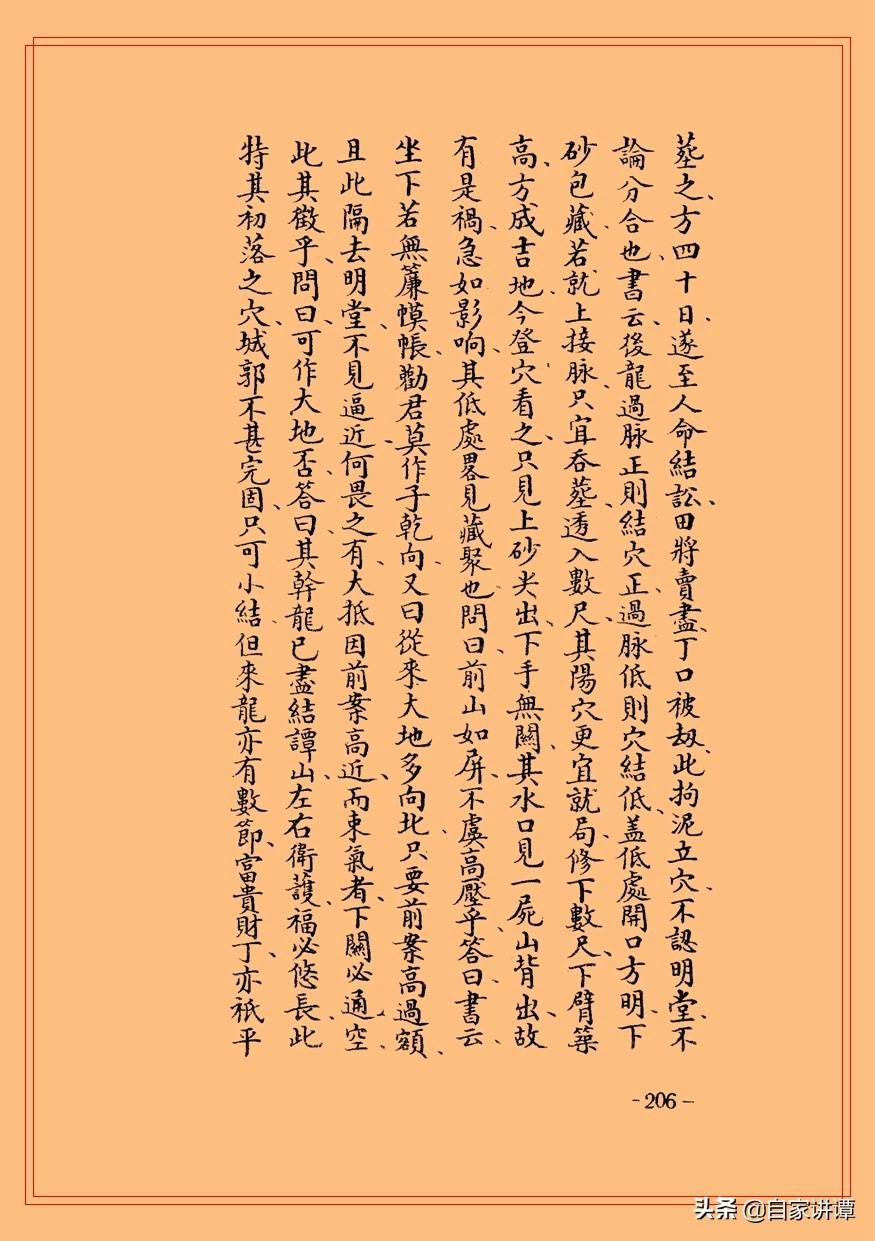 塟之方、四十日、遂至人命結訟、田將賣盡、丁口被刼、此拘泥立穴、不認明堂、不
論分合也、書云、後龍過脉正則結穴正、過脉低則穴結低、盖低處開口方明、下
砂包藏、若就上接脉、只宜吞塟、透入數尺、其陽穴更宜就局、修下數尺、下臂築
高、方成吉地、今登穴看之、只見上砂尖出、下手無關、其水口見一屍山背出、故
有是禍、急如影响、其低處畧見藏聚也、問曰、前山如屏、不虞高壓乎、答曰、書云、
坐下若無簾幙帳、勸君莫作子乾向、又曰從來大地多向北、只要前案高過額、
且此隔去明堂、不見逼近、何畏之有、大抵因前案高近、而束氣者、下關必通空、
此其徵乎、問曰、可作大地否、答曰、其幹龍已盡結譚山、左右衛護、福必悠長、此
特其初落之穴、城郭不甚完固、只可小結、但來龍亦有數節、富貴財丁、亦祇平
-206-
头条 @自家讲谭